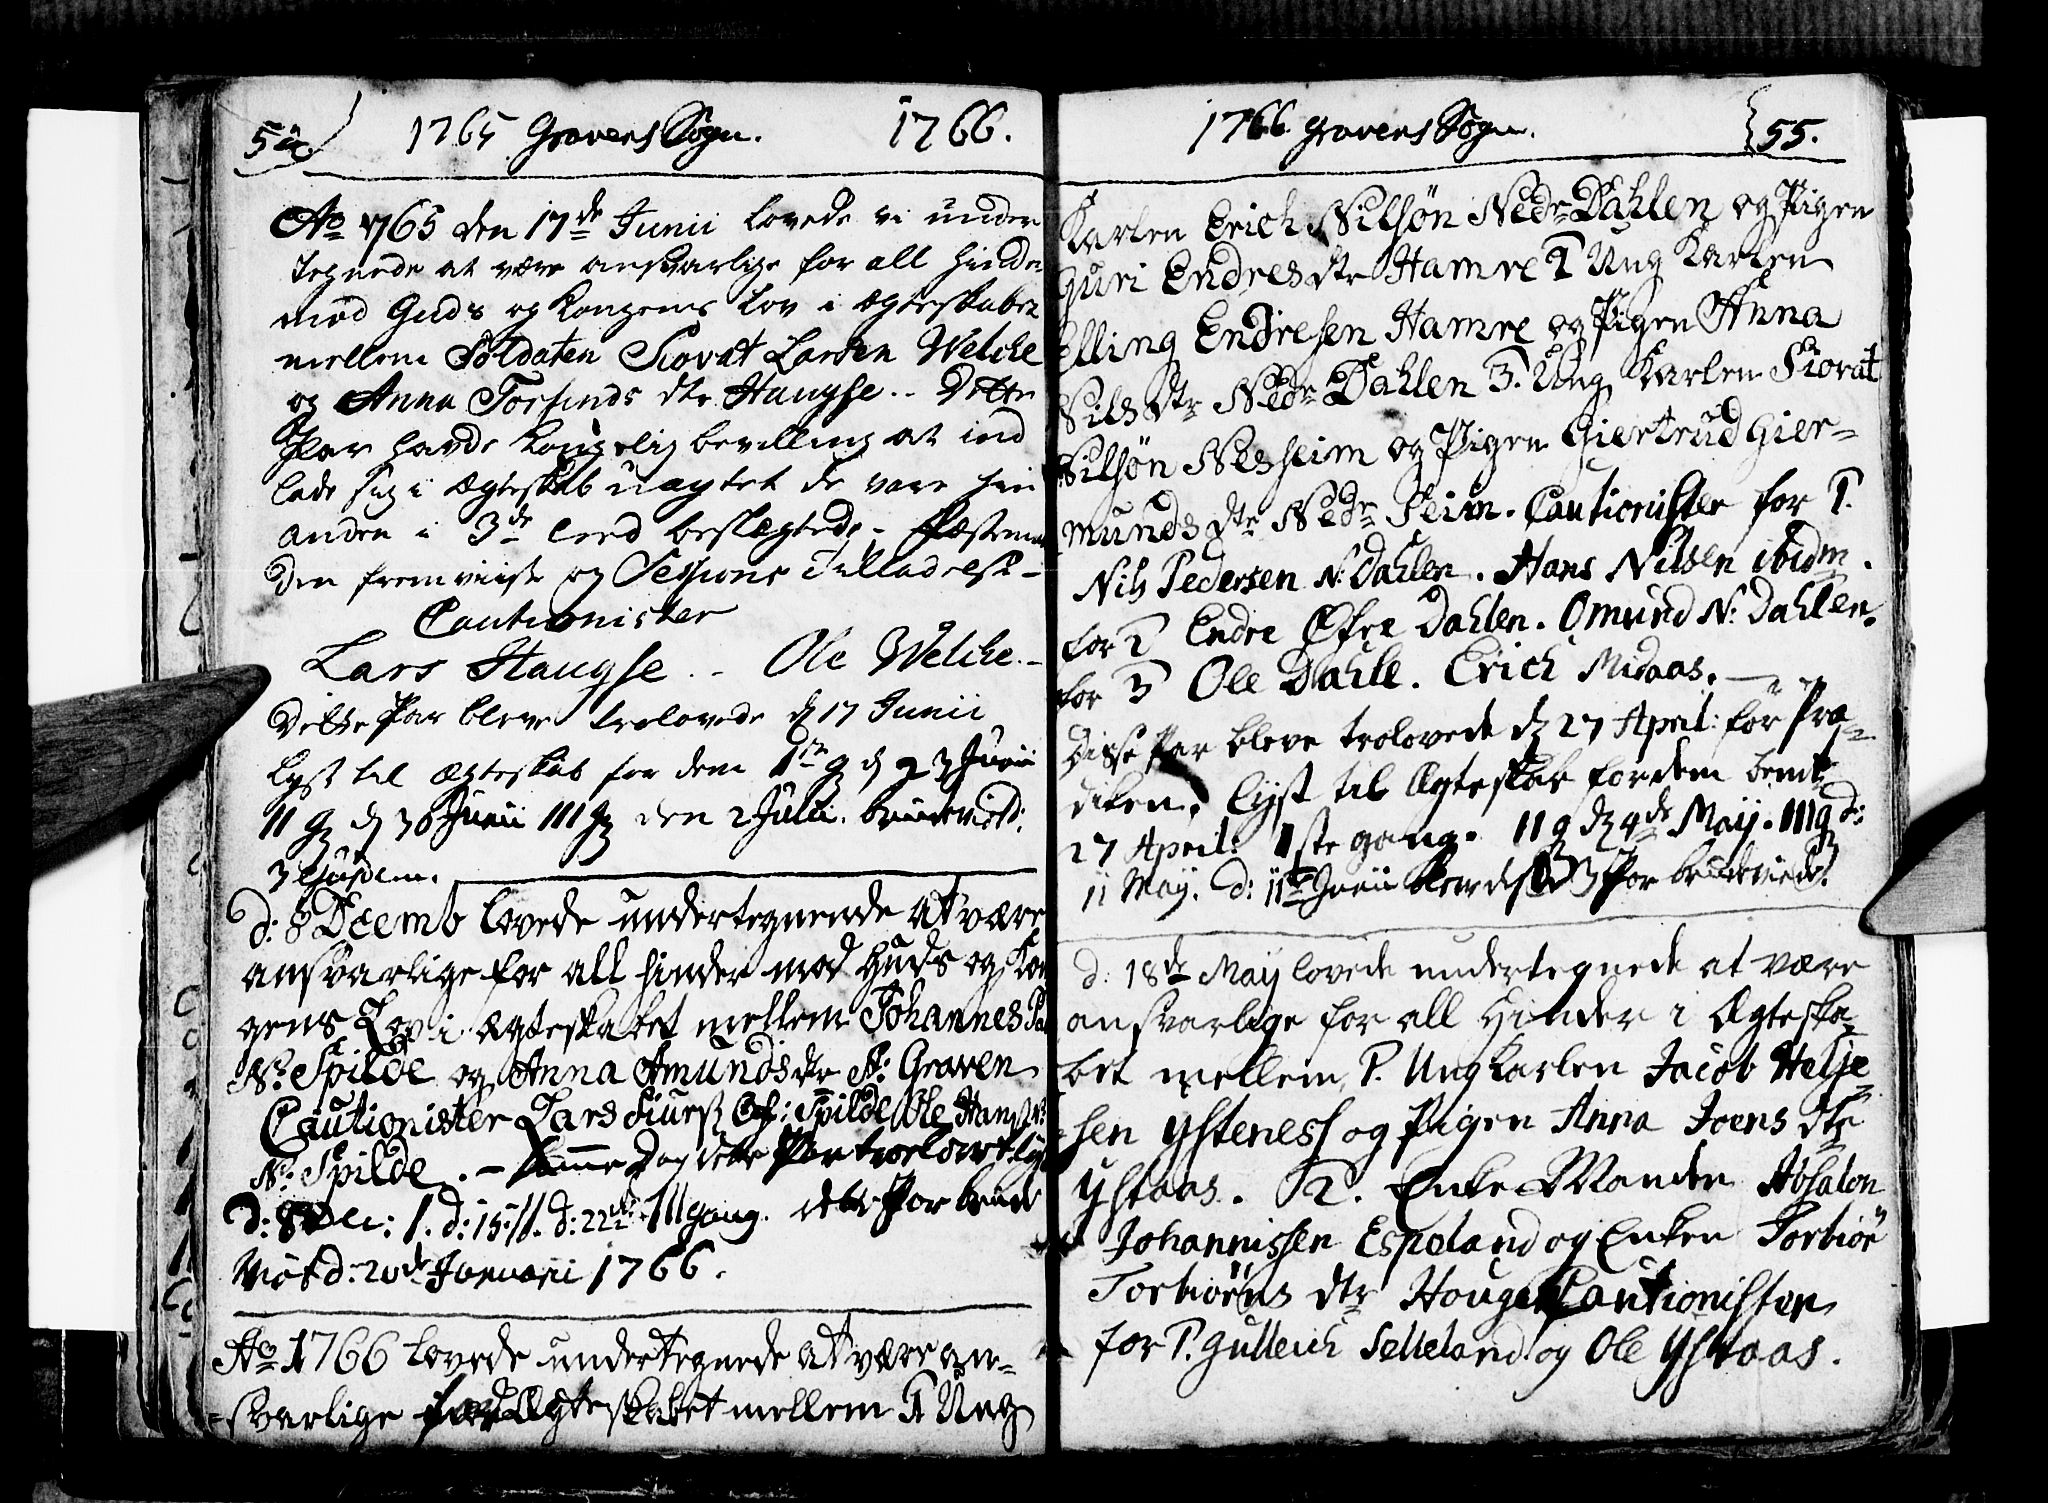 54. 1765 Gravens Sogn. 1766.
Ao 1765 den 17de Junii lovede vi under
tegnede at være ansvarlige for all hinder
mod Guds og Kongens Lov i ægteskabet
mellem Soldaten Siovat Larsen Welche
og Anna Torfinds dtr Haugse.. Dette
Par havde Kongelig bevilling at ind
lade sig i ægteskab uagtet de vare hin
anden i 3de leed beslegtede - 
den fremviist og Sessions Tilladelse -
Cautionister
Lars Haugse .. Ole Welche. -
Dette Par bleve trolovede d 17 Junii
lyst til ægteskab for dem 1te g d 23 Junii
II g d 30 Junii III g den 2 Julii. 
3 ejusdem.
d: 8 Decemb lovede undertegnende at være
ansvarlige for all hinder mod Guds og Kon
gens Lov i ægteskabet mellem Johannes
N: Spilde og Anna Amundsdtr N: Graven
Cautionister Lars Siurs: Øf: Spilde Ole Hans
N: Spilde. - Samme Dag dette Par trolovet lyst
d: 8 Dec: I. d: 15 II. d: 22de III gang. dette Par brude
viet d: 20de Januarii 1766.
Ao 1766 lovede undertegnede at være an-
svarlige for Ægteskabet mellem 1 Ung
1766. Gravens Sogn. 55.
Karlen Erich Nilsøn Nedr Dahlen og Pigen
Guri Endresdtr Hamre 2 Ung Karlen
Elling Endresen Hamre og Pigen Anna
Nilsdtr Nedr Dahlen 3. Ung Karlen Siovat
Nilsøn Nesheim og Pigen Giertrud Gier-
munds dtr Nedr Seim. Cautionister for 1.
Nils Pedersen N: Dahlen. Hans Nilsen ibidm.
for 2 Endre Øfre Dahlen. Omund N: Dahlen.
for 3 Ole Dahle. Erich Midaas.
Disse Par bleve trolovede d 27 April: for Præ-
diken, lyst til Ægteskab for dem bemte
27 April: 1ste gang. II g d 4de May. III g d:
11 May. d: 11te Junii blev disse 3 Par brudeviede.
d: 18de May lovede undertegnede at være
ansvarlige for all Hinder i Ægteska-
bet mellem 1. Ungkarlen Jacob Helje-
sen Ysteness og Pigen Anna Joens dtr
Ystaas. 2. Enke Manden Absalon
Johannissen Espeland og Enken Torbiør
Torbiørns dtr Houge Cautionister
for 1. Gulleich Selleland og Ole Ystaas.